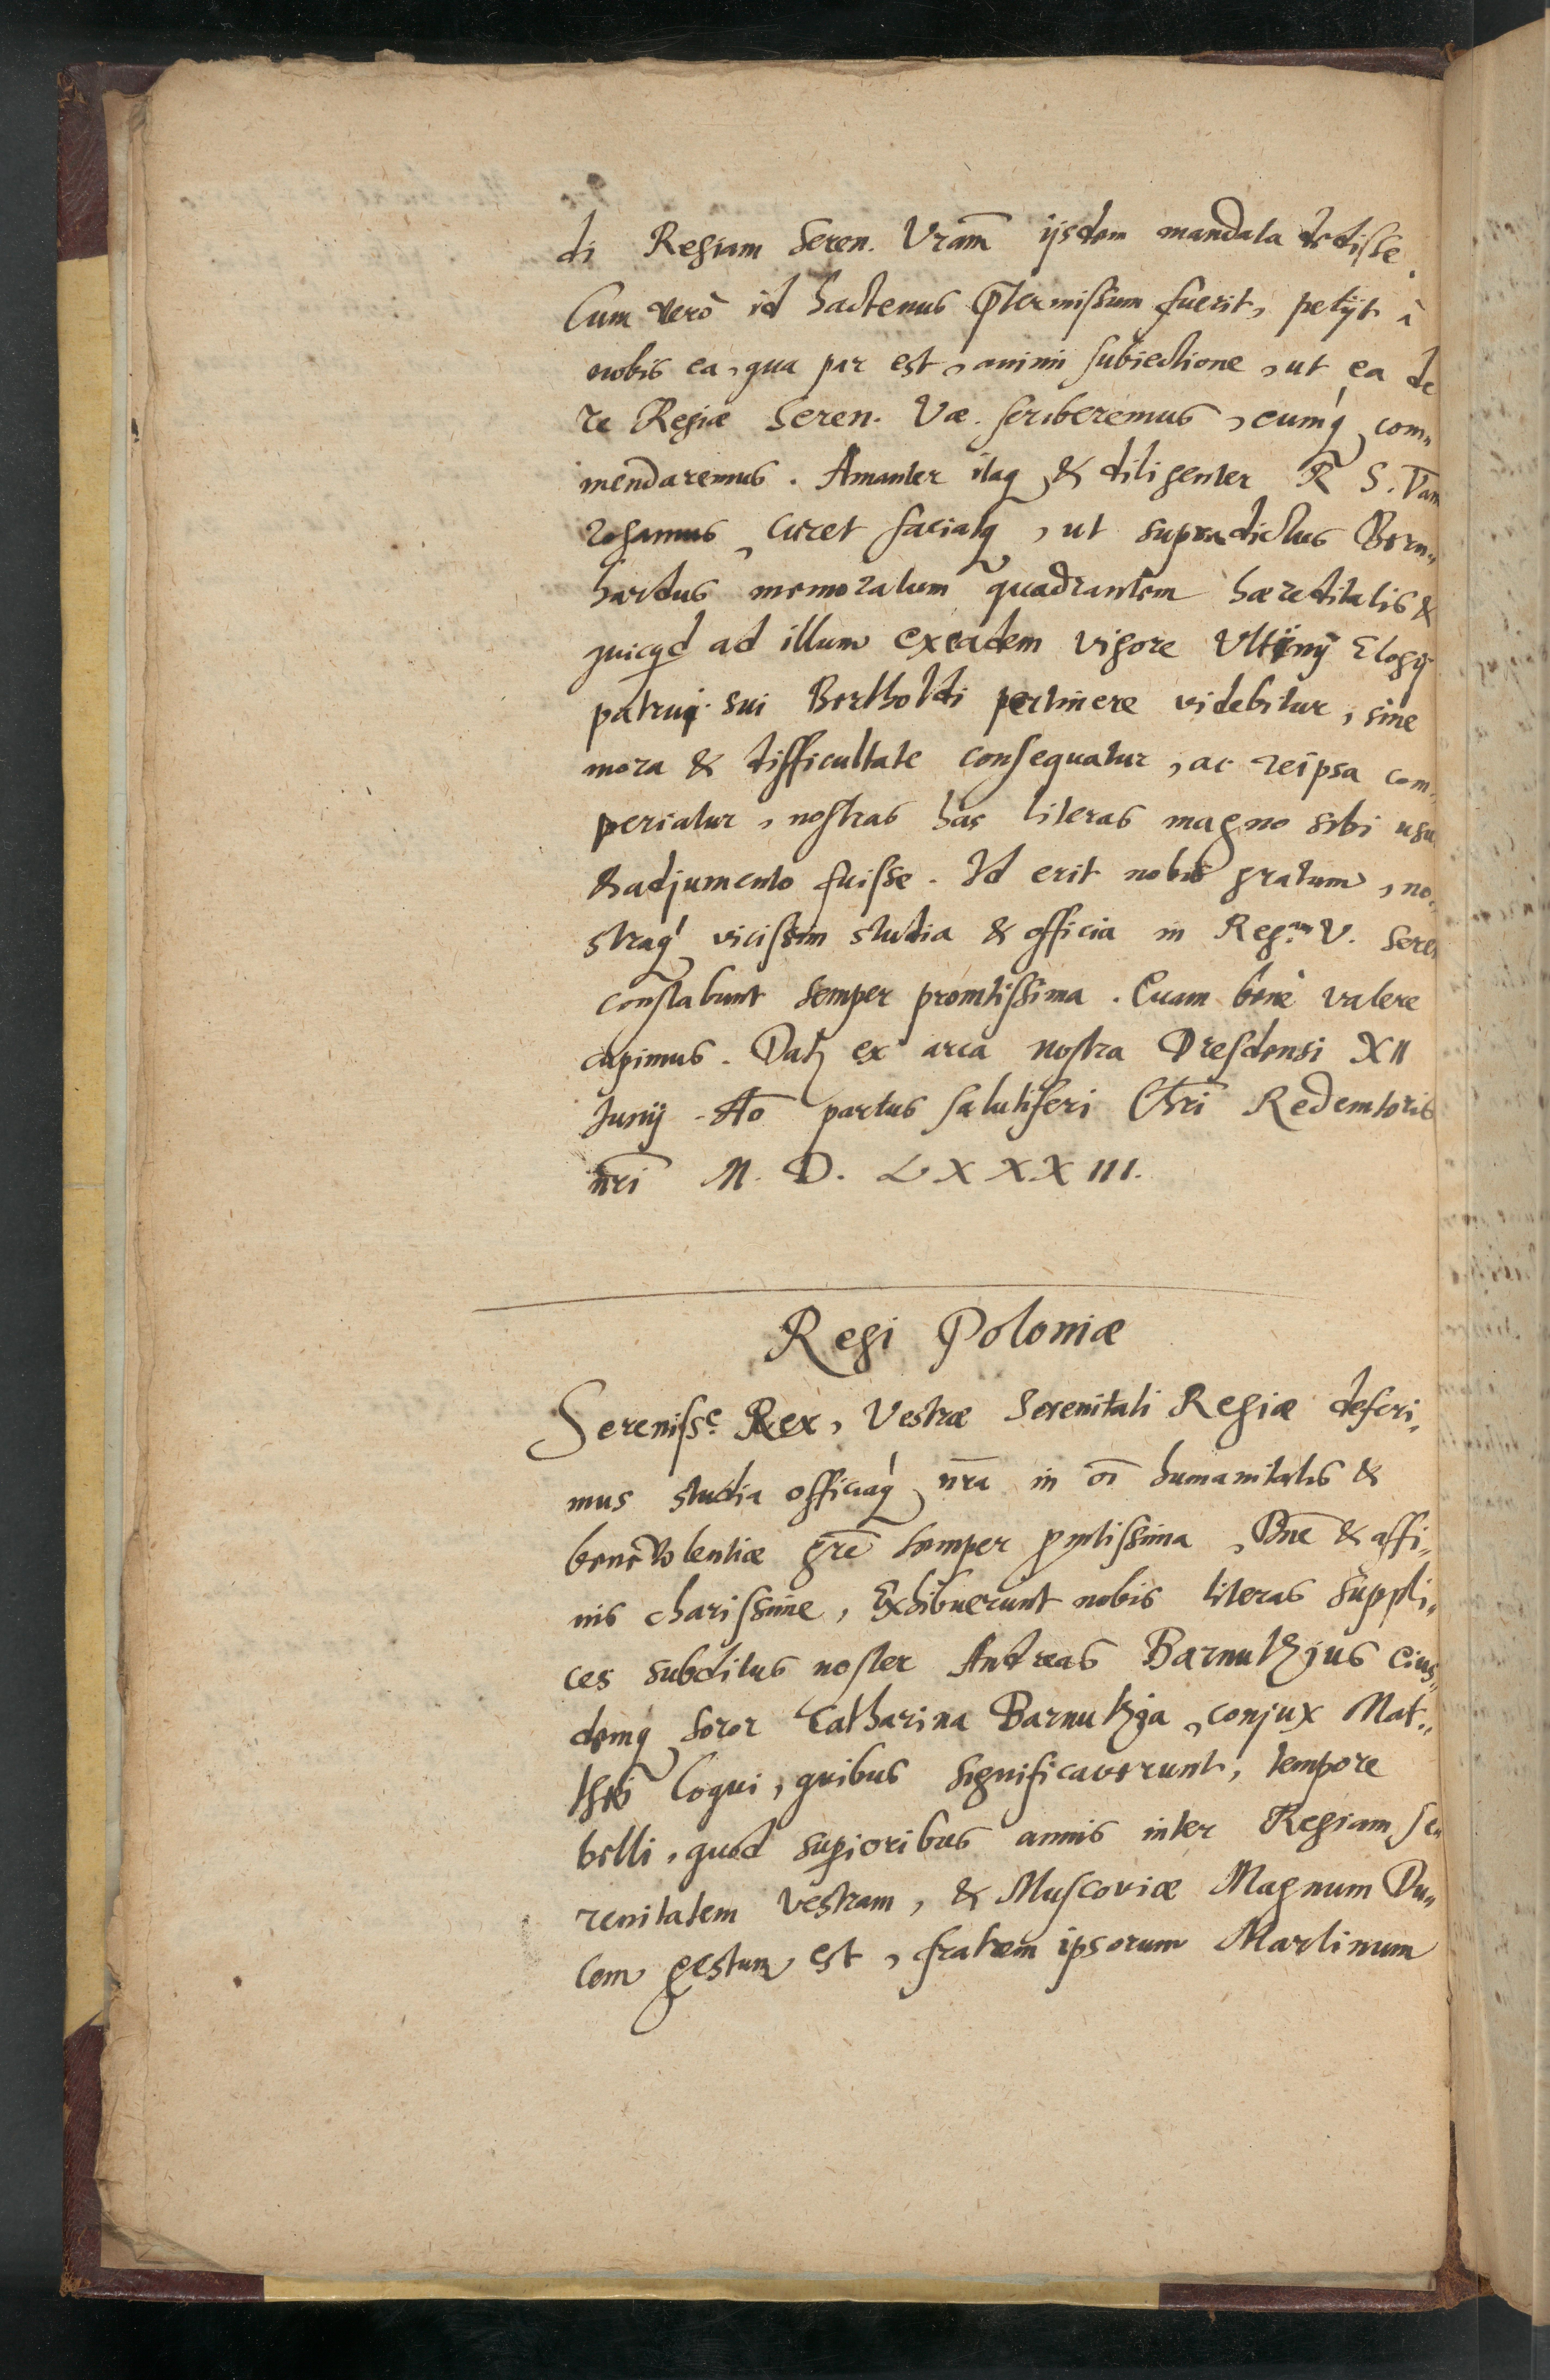 di Regiam Seren. Vram̄ ijsdem mandata dedisse.
Cum verò id hactenus p̄termissum fuerit, petijt à
nobis ea, qua par est, animi subiectione, ut ea de
re Regiæ Seren. Væ. scriberemus, eumq́ com„
mendaremus. Amanter itaq & diligenter R. S. Vam
rogamus, curet faciatq, ut supradictus Bern„
hardus memoratum quadrantem hæreditatis &
quicqd ad illum ex eadem vigore Ultimj Elogij
patrui sui Bertholdi pertinere videbitur, sine
mora & difficultate consequatur, ac reipsa com„
periatur, nostras has literas magno sibi usu
& adjumento fuisse. Id erit nobis gratum, no„
straq́ vicissim studia & officia in Reg.am V. Seren
constabunt semper promtissima. Quam benè valere
cupimus. Datȝ ex arca nostra Dresdensi XII
Junij Aō partus salutiferi Chrī Redemtoris
nr̄i M. D. LXXXIII.
Regi Poloniæ
Sereniss.e Rex, Vestræ Serenitati Regiæ deferi„
mus studia officiaq́ nr̄a in oī humanitatis &
benevolentiæ gn̄re semper promtissima, Dn̄e & affi„
nis charissime, Exhibuerunt nobis literas suppli„
ces subditus noster Andreas Barnutzjus eius„
demq soror Catharina Barnutzja, conjux Mat„
thēi Coqui, quibus significaverunt, tempore
belli, quod superioribus annis inter Regiam Se„
renitatem Vestram, & Muscoviæ Magnum Du„
cem gestum est, fratrem ipsorum Martinum